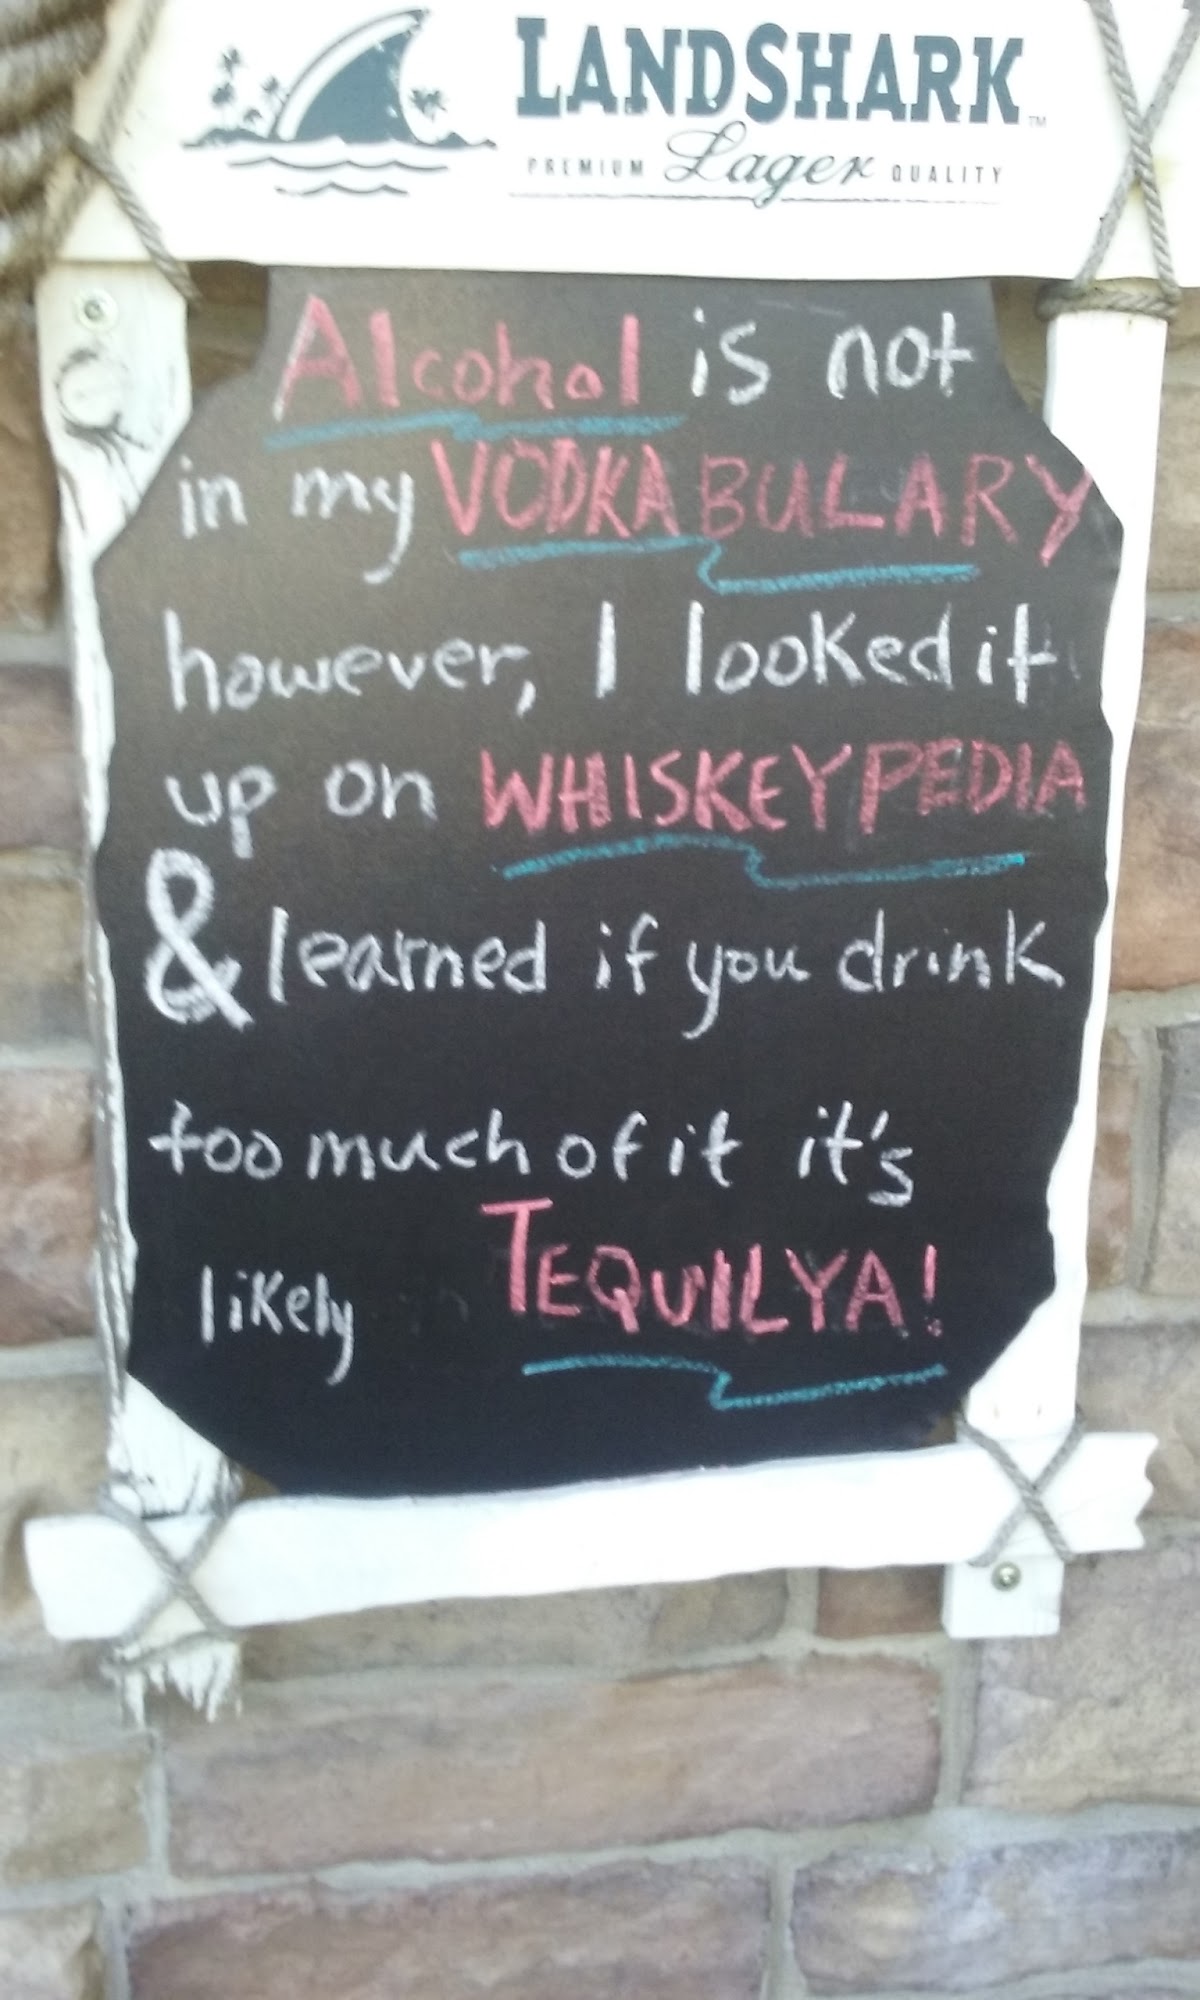 LANDSHARK™
PREMIUM Lager QUALITY
Alcohol is not
in my VODKABULARY
however, I looked it
up on WHISKEYPEDIA
& learned if you drink
too much of it it's
likely TEQUILYA!